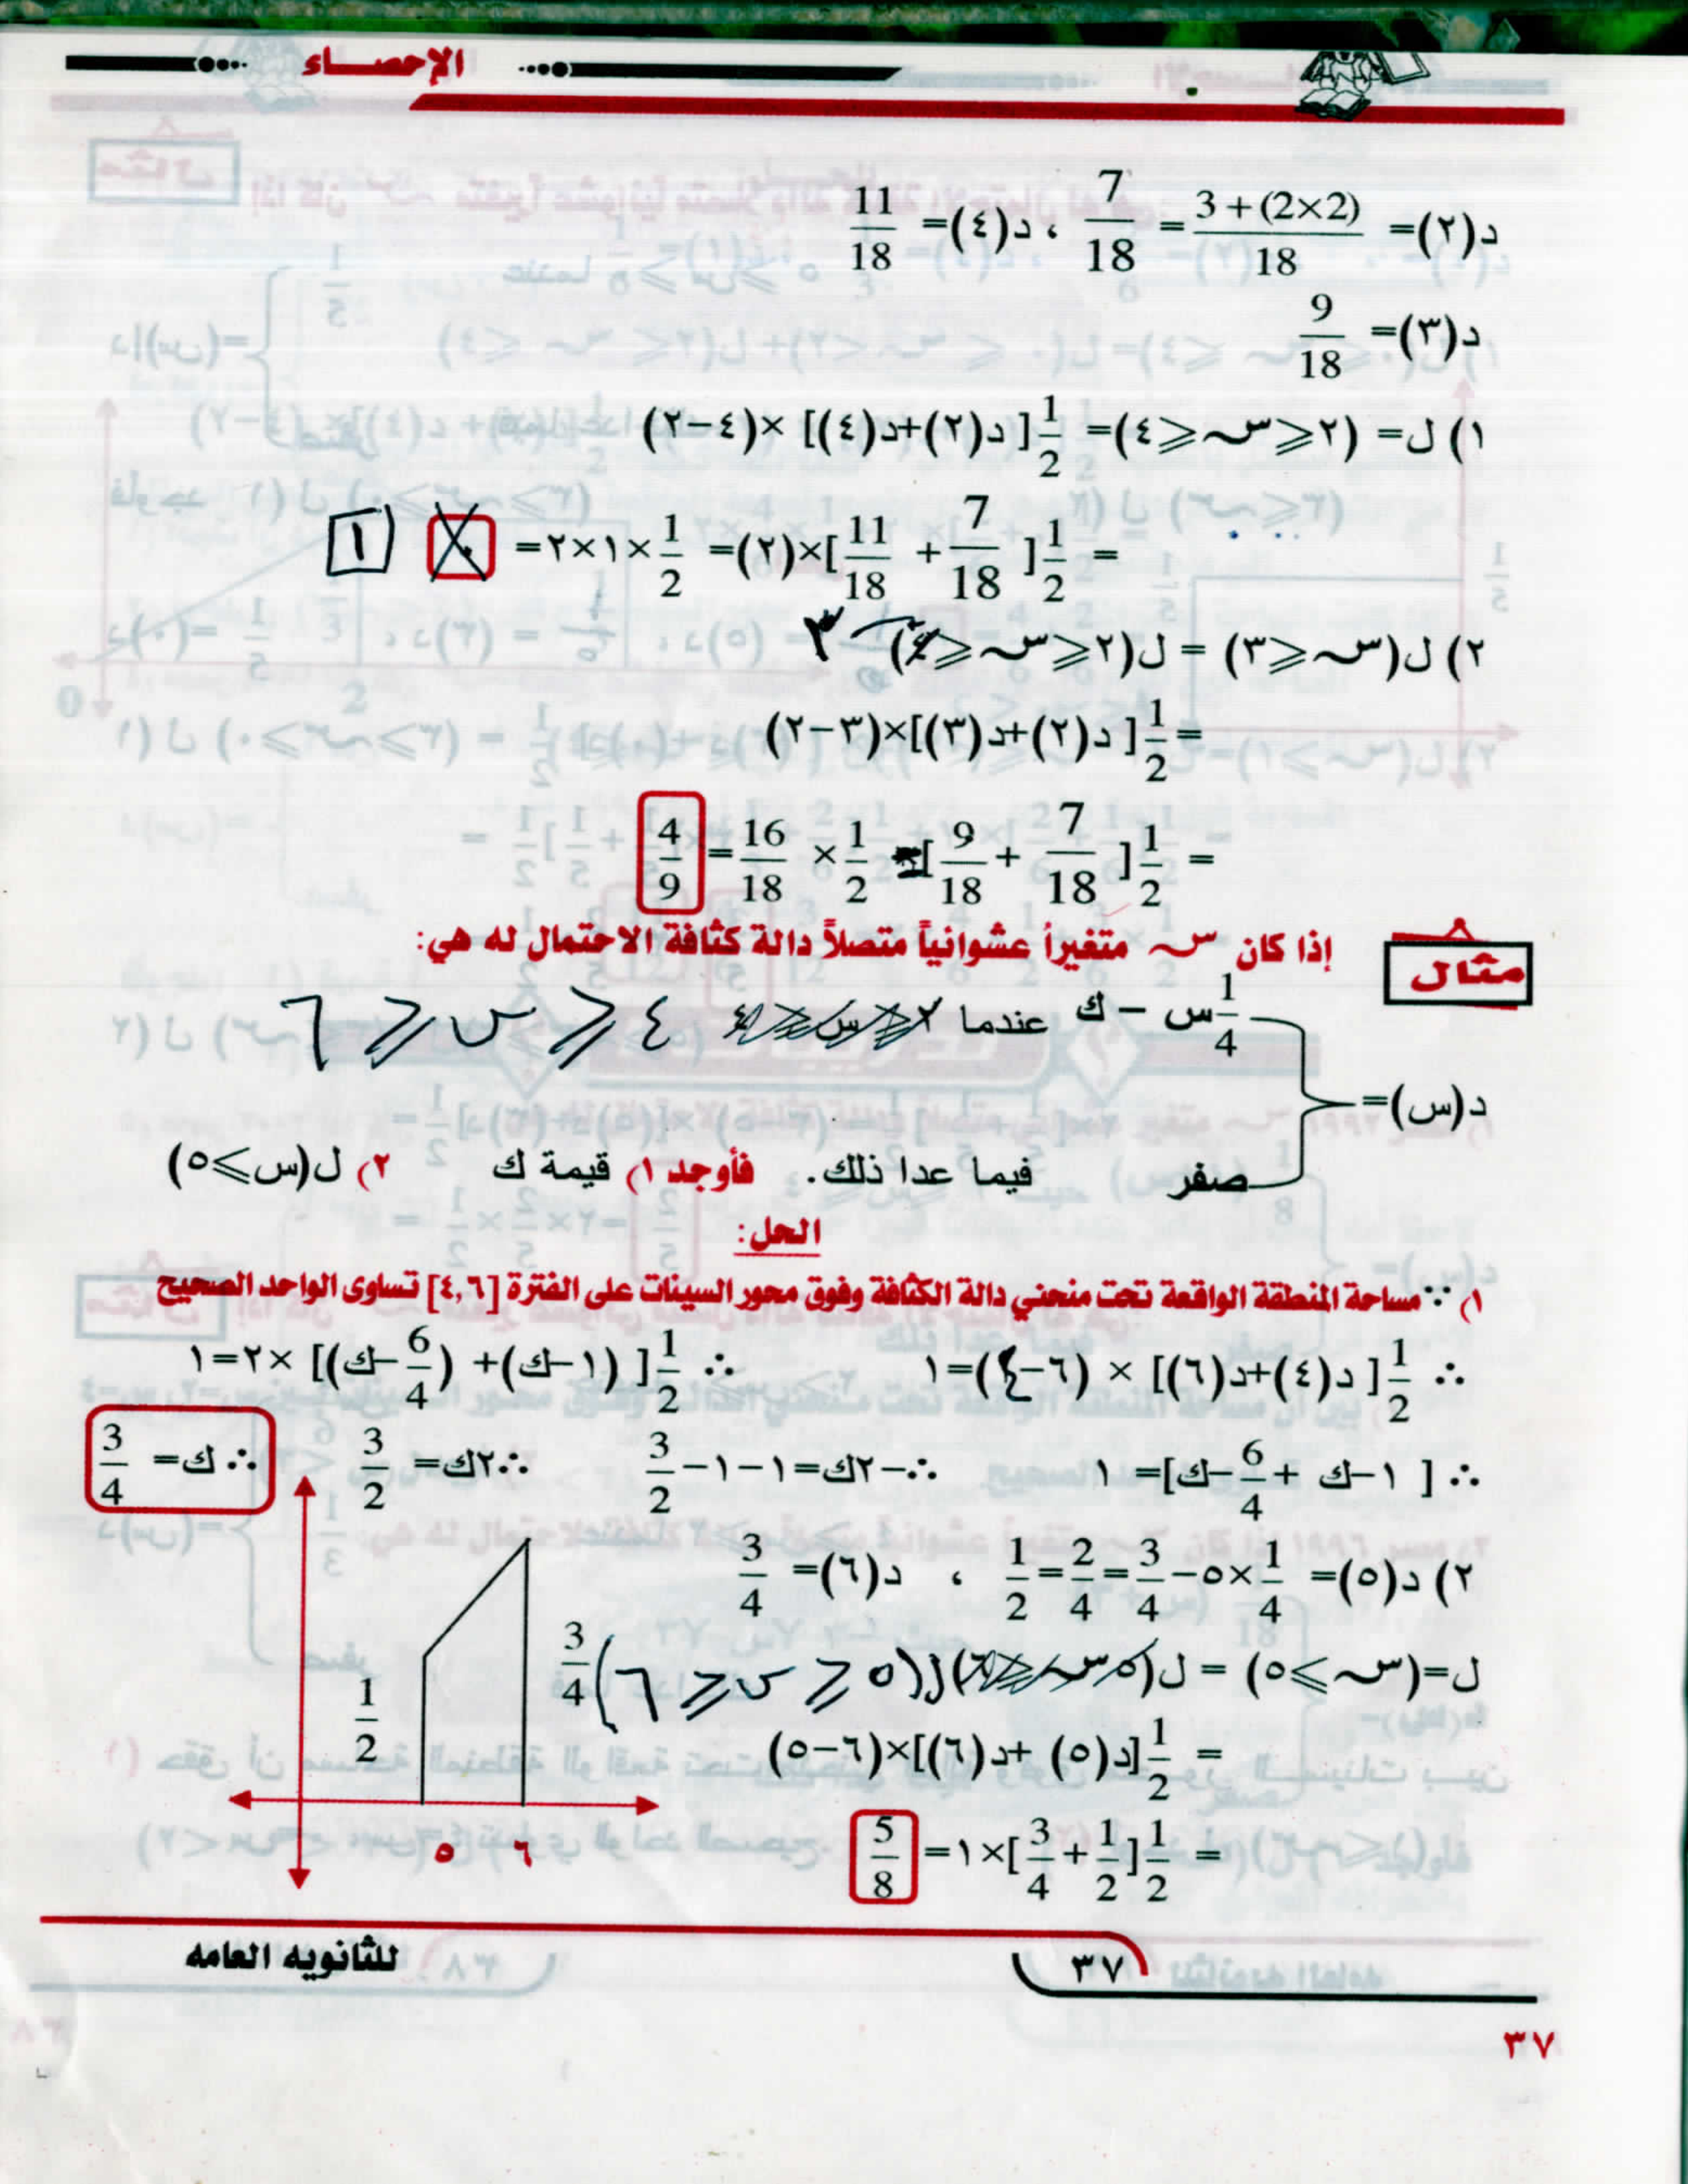 الإحصاء
د(٢)= \frac{3+(2×2)}{18} = \frac{7}{18} ، د(٤)= \frac{11}{18}
د(٣)= \frac{9}{18}
١) ل= (٢≤س≤٤)= \frac{1}{2}[ د(٢)+د(٤)] ×(٤−٢)
= \frac{1}{2}[ \frac{7}{18} + \frac{11}{18} ]×(٢)= \frac{1}{2}×١×٢= ١
٢) ل(س≤٣) = ل(٢≤س≤٤) ٣
= \frac{1}{2}[ د(٢)+د(٣)]×(٣−٢)
= \frac{1}{2}[ \frac{7}{18} + \frac{9}{18} ] = \frac{1}{2} × \frac{16}{18} = \frac{4}{9}
مثال
إذا كان س متغيراً عشوائياً متصلاً دالة كثافة الاحتمال له هي:
\frac{1}{4}س − ك عندما ٤ ≤ س ≤ ٦
د(س)=
صفر فيما عدا ذلك. فأوجد ١) قيمة ك ٢) ل(س≥٥)
الحل:
١) ∵ مساحة المنطقة الواقعة تحت منحني دالة الكثافة وفوق محور السينات على الفترة [٤,٦] تساوى الواحد الصحيح
∴ \frac{1}{2}[ د(٤)+د(٦)] × (٦−٤)=١ ∴ \frac{1}{2}[ (١−ك) +(\frac{6}{4}−ك)] ×٢=١
∴ [ ١−ك + \frac{6}{4}−ك]= ١ ∴−٢ك=١−١−\frac{3}{2} ∴٢ك= \frac{3}{2} ∴ ك= \frac{3}{4}
٢) د(٥)= \frac{1}{4}×٥−\frac{3}{4}=\frac{2}{4}=\frac{1}{2} ، د(٦)= \frac{3}{4}
ل=(س≥٥) = ل(٥ ≤ س ≤ ٦)
= \frac{1}{2}[د(٥) +د(٦)]×(٦−٥)
= \frac{1}{2}[\frac{1}{2}+\frac{3}{4}]×١= \frac{5}{8}
\frac{1}{2} \frac{3}{4}
٥ ٦
للثانويه العامه
٣٧
٣٧